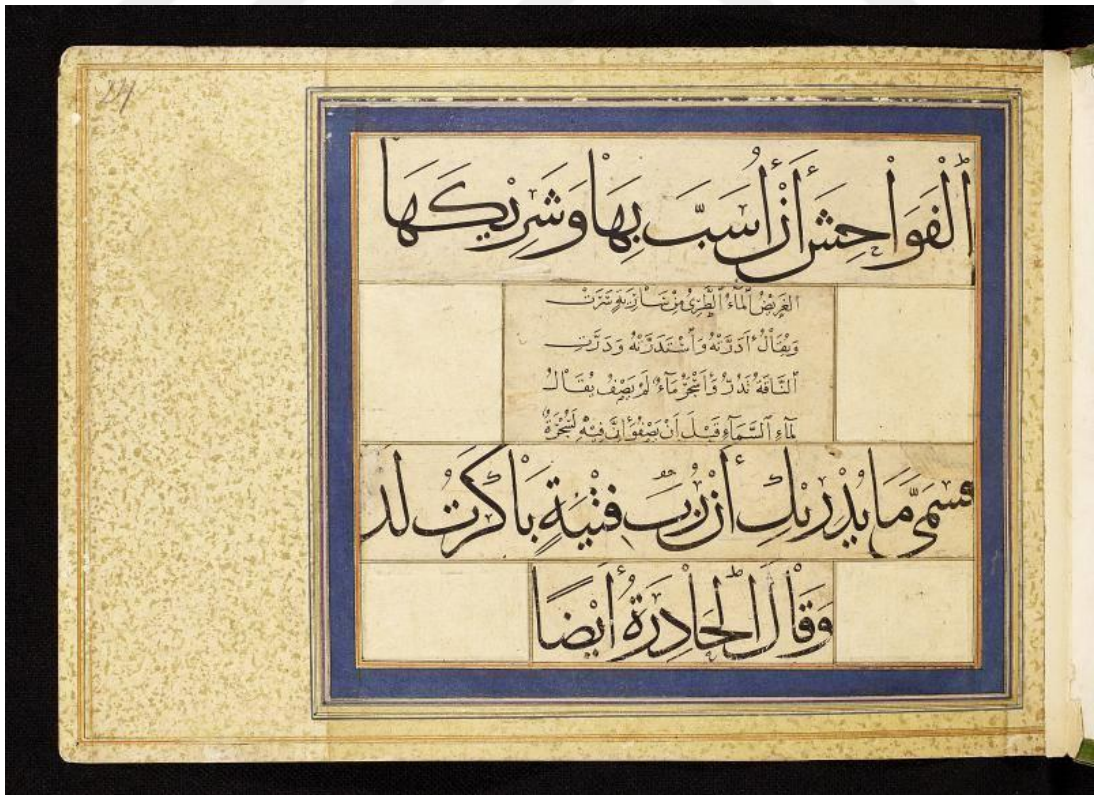 24
ٱلْفَوَاحِشَ أَنْ أُسَبَّ بِهَا وَشَرِيكَهَا
الغَرِيضُ ٱلْمَآءُ ٱلطَّرِىُّ مِنْ سَارِيَةٍ سَرَتْ
وَيُقَالُ أَدَرَّتْهُ وَٱسْتَدَرَّتْهُ وَدَرَّتِ
ٱلنَّاقَةُ تَدُرُّ وَأَسْجَرُ مَآءٌ لَمْ يَصْفُ يُقَالُ
لِمَآءِ ٱلسَّمَآءِ قَبْلَ أَنْ يَصْفُوَ إِنَّ فِيهِ لَسُجْرَةً
فَسُمَىَّ مَا يُدْرِيكِ أَنْ رُبَ فِتْيَةٍ بَاكَرْتُ لَذ
وَقَالَ ٱلْحَادِرَةُ أَيْضًا